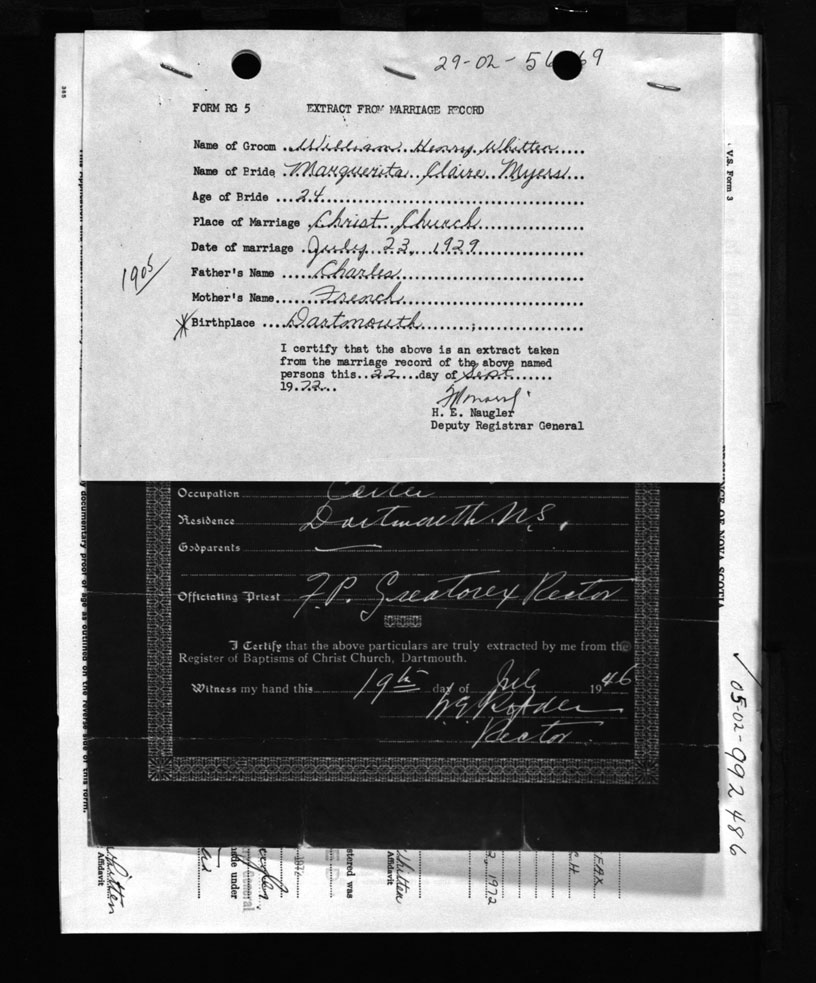 29-02-56 69
FORM RG 5 EXTRACT FROM MARRIAGE RECORD
Name of Groom ..William Henry Whitten.....
Name of Bride .Marguerita Claire Myers...
Age of Bride ...24...
Place of Marriage .Christ Church...
Date of marriage .July 23, 1929...
1905
Father's Name ....Charles...
Mother's Name....French...
Birthplace ....Dartmouth...
I certify that the above is an extract taken
from the marriage record of the above named
persons this..22...day of Sept.......
19.72...
H. E. Naugler
Deputy Registrar General
V.S. Form 3
PROVINCE OF NOVA SCOTIA
Occupation
Residence Dartmouth N.S.
Godparents
Officiating Priest F.P. Greatorex Rector
I Certify that the above particulars are truly extracted by me from the
Register of Baptisms of Christ Church, Dartmouth.
Witness my hand this 19th day of July 1946
Rector
documentary proof of age as outlined on the reverse side of this form.
05-02-992486
Whitten
Affidavit
made under
General
stered was
Whitten
Affidavit
1972
FAX